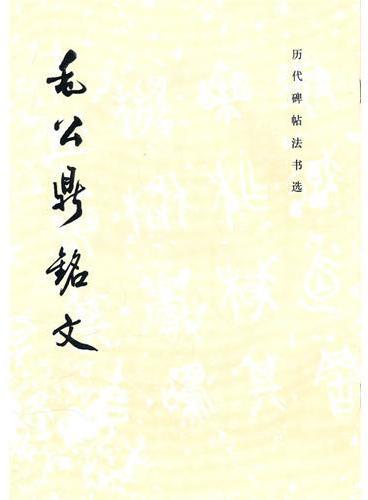 历代碑帖法书选
毛公鼎銘文